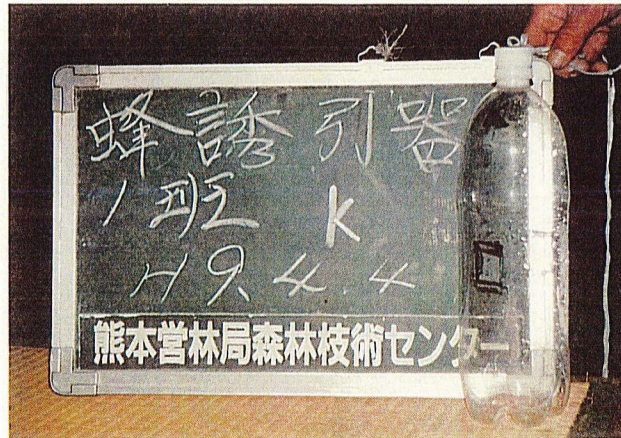 蜂誘引器
1班 K
H9.4.4
熊本営林局森林技術センター